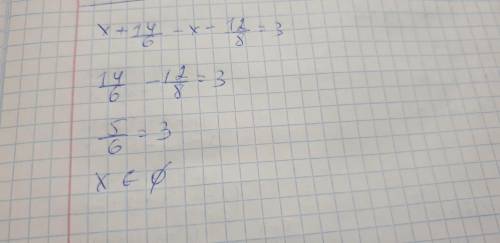 x + 14/6 - x - 12/8 = 3
14/6 - 12/8 = 3
5/6 = 3
x ∈ ∅